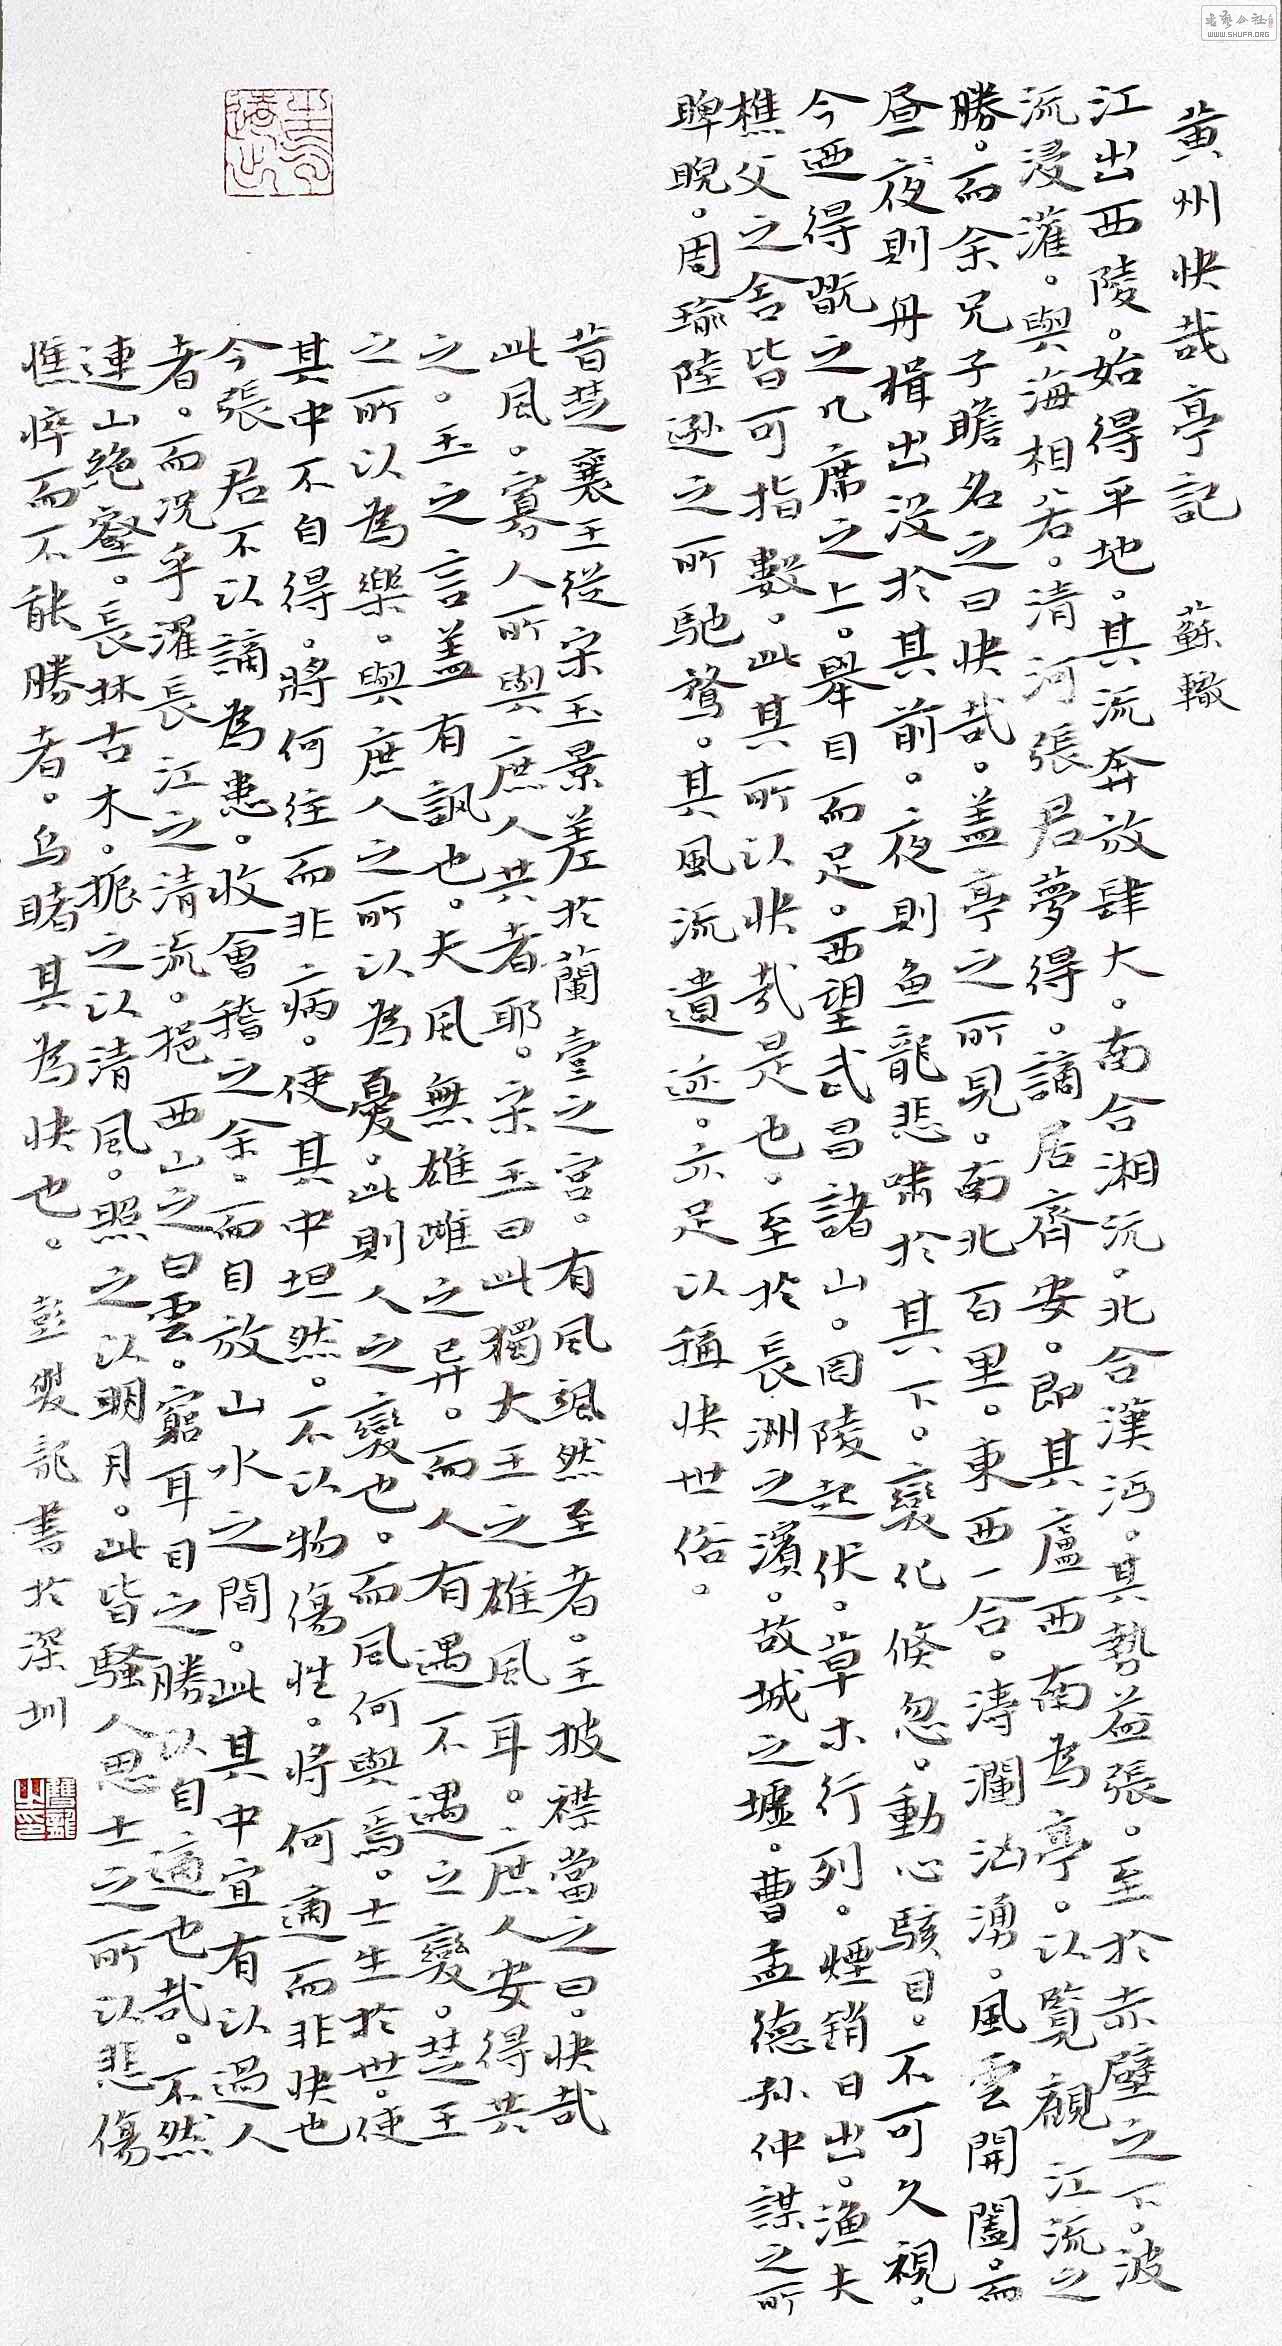 黃州快哉亭記 蘇轍
江出西陵。始得平地。其流奔放肆大。南合湘沅。北合漢沔。其勢益張。至於赤壁之下。波
流浸灌。與海相若。清河張君夢得。謫居齊安。即其廬西南為亭。以覽觀江流之
勝。而余兄子瞻名之曰快哉。蓋亭之所見。南北百里。東西一合。濤瀾洶湧。風雲開闔。而
昼夜則舟楫出没於其前。夜則鱼龍悲啸於其下。變化倏忽。動心駭目。不可久視。
今迺得翫之几席之上。舉目而足。西望武昌諸山。岡陵起伏。草木行列。煙銷日出。漁夫
樵父之舍皆可指數。此其所以快哉是也。至於長洲之濱。故城之墟。曹孟德孙仲謀之所
睥睨。周瑜陸遜之所馳鶩。其風流遺迹。亦足以稱快世俗。
昔楚襄王從宋玉景差於蘭臺之宮。有風颯然至者。王披襟當之曰。快哉
此風。寡人所與庶人共者耶。宋玉曰此獨大王之雄風耳。庶人安得共
之。玉之言盖有諷也。夫風無雄雌之异。而人有遇不遇之變。楚王
之所以為樂。與庶人之所以為憂。此則人之變也。而風何與焉。士生於世。使
其中不自得。將何往而非病。使其中坦然。不以物傷性。将何適而非快也
今張君不以謫為患。收會稽之余。而自放山水之間。此其中宜有以過人
者。而況乎濯長江之清流。挹西山之白雲。窮耳目之勝以自適也哉。不然
連山絶壑。長林古木。振之以清風。照之以明月。此皆騷人思士之所以悲傷
憔悴而不能勝者。乌睹其為快也。彭雙龍書於深圳
雙龍之印
WWW.SHUFA.ORG